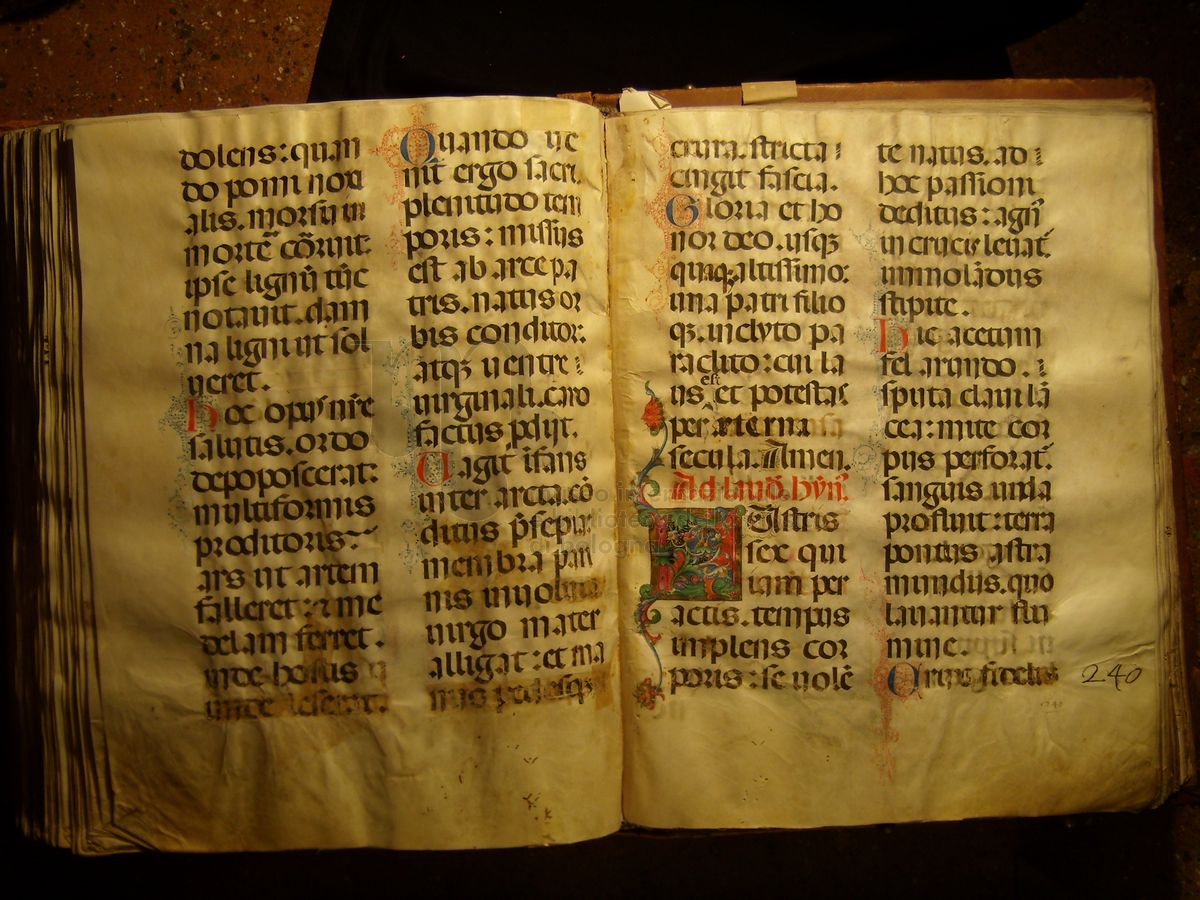 dolens: quan
do pomi noxi
alis. morsu in
mortē cōruit.
ipse lignū tūc
notauit. dam
na ligni ut sol
ueret.
Hoc opus nr̄e
salutis. ordo
depoposcerat:
multiformis
proditoris
ars ut artem
falleret: ⁊ me
delam ferret.
inde hostis
unde leserat.
Quando ue
nit ergo sacri.
plenitudo tem
poris: missus
est ab arce pa
tris. natus or
bis conditor:
atqꝫ uentre
uirginali. caro
factus ꝓdijt.
Uagit īfans
inter arcta. cō
ditus p̄sepia:
membra pan
nis inuoluta
uirgo mater
alligat: et ma
nus pedesqꝫ
crura. stricta
cingit fascia.
Gloria et ho
nor deo. usqꝫ
quaqꝫ altissimo:
una patri filio
qꝫ. inclyto pa
raclito: cui la
us est et potestas
per æterna
secula. Amen.
Ad laud̄. hyn̄.
LUstris
sex qui
iam per
actis. tempus
implens cor
poris: se uolē
te natus. ad
hoc passioni
deditus: agn̄
in crucis leuat̄
immolādus
stipite.
Hic acetum
fel arundo.
sputa claui lā
cea: mite cor
pus perforat̄.
sanguis unda
profluit: terra
pontus astra
mundus. quo
lauantur flu
mine.
Crux fidelis
240